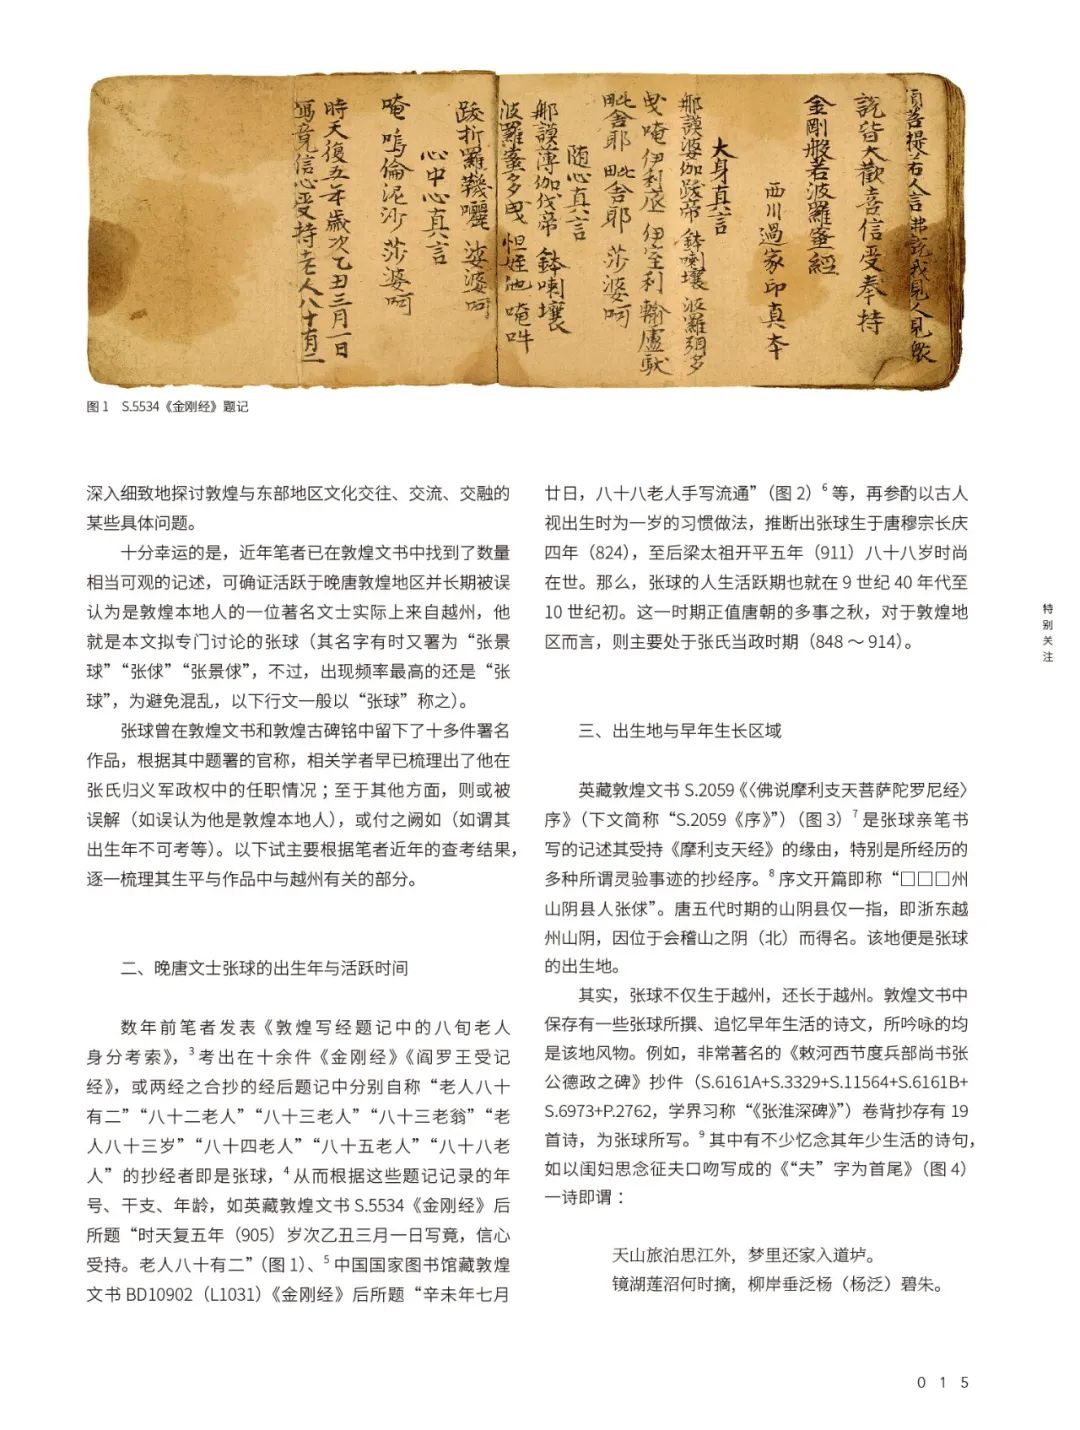 須菩提若人言佛說我見人見眾
說皆大歡喜信受奉持
金剛般若波羅蜜經
西川過家印真本
大身真言
那謨婆伽跋帝 鉢喇壤 波羅弭多
曳 唵 伊利底 伊室利 輸盧馱
毗舍耶 毗舍耶 莎婆呵
随心真言
那謨薄伽伐帝 鉢喇壤
波羅蜜多曳 怛姪他 唵吽
跋折羅
心中心真言
唵 嗚倫泥沙 莎婆呵
時天復五年歲次乙丑三月一日
寫竟信心受持老人八十有二
图 1 S.5534《金刚经》题记
深入细致地探讨敦煌与东部地区文化交往、交流、交融的
某些具体问题。
十分幸运的是，近年笔者已在敦煌文书中找到了数量
相当可观的记述，可确证活跃于晚唐敦煌地区并长期被误
认为是敦煌本地人的一位著名文士实际上来自越州，他
就是本文拟专门讨论的张球（其名字有时又署为“张景
球”“张俅”“张景俅”，不过，出现频率最高的还是“张
球”，为避免混乱，以下行文一般以“张球”称之）。
张球曾在敦煌文书和敦煌古碑铭中留下了十多件署名
作品，根据其中题署的官称，相关学者早已梳理出了他在
张氏归义军政权中的任职情况；至于其他方面，则或被
误解（如误认为他是敦煌本地人），或付之阙如（如谓其
出生年不可考等）。以下试主要根据笔者近年的查考结果，
逐一梳理其生平与作品中与越州有关的部分。
二、晚唐文士张球的出生年与活跃时间
数年前笔者发表《敦煌写经题记中的八旬老人
身分考索》，3 考出在十余件《金刚经》《阎罗王受记
经》，或两经之合抄的经后题记中分别自称“老人八十
有二”“八十二老人”“八十三老人”“八十三老翁”“老
人八十三岁”“八十四老人”“八十五老人”“八十八老
人”的抄经者即是张球，4 从而根据这些题记记录的年
号、干支、年龄，如英藏敦煌文书 S.5534《金刚经》后
所题“时天复五年（905）岁次乙丑三月一日写竟，信心
受持。老人八十有二”（图 1）、5 中国国家图书馆藏敦煌
文书 BD10902（L1031）《金刚经》后所题“辛未年七月
廿日，八十八老人手写流通”（图 2）6 等，再参酌以古人
视出生时为一岁的习惯做法，推断出张球生于唐穆宗长庆
四年（824），至后梁太祖开平五年（911）八十八岁时尚
在世。那么，张球的人生活跃期也就在 9 世纪 40 年代至
10 世纪初。这一时期正值唐朝的多事之秋，对于敦煌地
区而言，则主要处于张氏当政时期（848～914）。
三、出生地与早年生长区域
英藏敦煌文书 S.2059《〈佛说摩利支天菩萨陀罗尼经〉
序》（下文简称“S.2059《序》”）（图 3）7 是张球亲笔书
写的记述其受持《摩利支天经》的缘由，特别是所经历的
多种所谓灵验事迹的抄经序。8 序文开篇即称“□□□州
山阴县人张俅”。唐五代时期的山阴县仅一指，即浙东越
州山阴，因位于会稽山之阴（北）而得名。该地便是张球
的出生地。
其实，张球不仅生于越州，还长于越州。敦煌文书中
保存有一些张球所撰、追忆早年生活的诗文，所吟咏的均
是该地风物。例如，非常著名的《敕河西节度兵部尚书张
公德政之碑》抄件（S.6161A+S.3329+S.11564+S.6161B+
S.6973+P.2762，学界习称“《张淮深碑》”）卷背抄存有 19
首诗，为张球所写。9 其中有不少忆念其年少生活的诗句，
如以闺妇思念征夫口吻写成的《“夫”字为首尾》（图 4）
一诗即谓：
天山旅泊思江外，梦里还家入道垆。
镜湖莲沼何时摘，柳岸垂泛杨（杨泛）碧朱。
特别关注
015